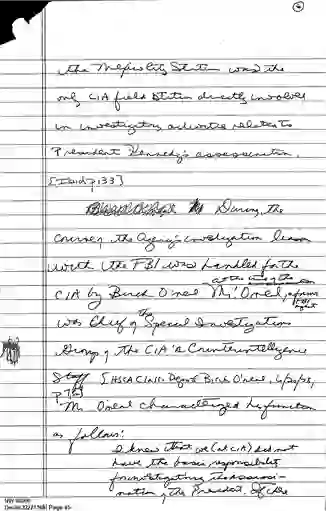 the Mexico City Station was the
only CIA field Station directly involved
in investigatory activities related to
President Kennedy's assassination.
[Ibid p133]
During the
course of the Agency's investigation liaison
with the FBI was handled for the
at the time of the
CIA by Birch O'Neal. Mr. O'Neal, a former
FBI agent
was Chief of the Special Investigations
Group of the CIA's Counterintelligence
Staff [HSCA Class. Depo of Birch O'Neal, 6/20/78,
Mr. O'Neal characterized his function
as follows:
I knew that we (at CIA) did not
have the basic responsibility
for investigating the assassi-
nation of the President. If there